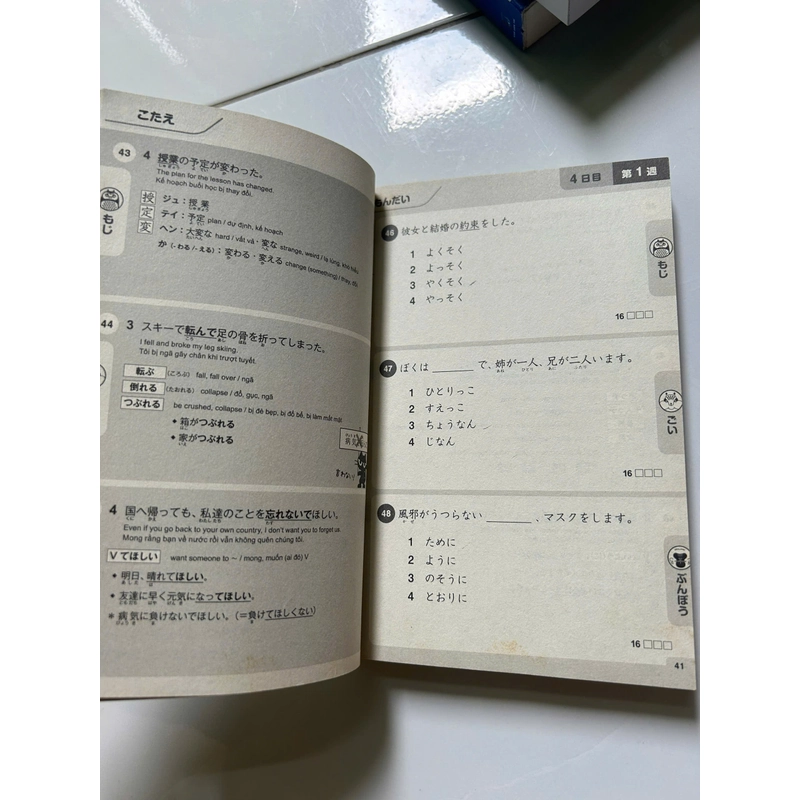 こたえ
43 4 授業の予定が変わった。
じゅぎょう よてい か
The plan for the lesson has changed.
Kế hoạch buổi học bị thay đổi.
もじ
授 ジュ:授業
じゅぎょう
定 テイ:予定 plan / dự định, kế hoạch
よてい
変 ヘン:大変な hard / vất vả・変な strange, weird / lạ lùng, khó hiểu
たいへん へん
か(-わる/-える):変わる・変える change (something) / thay, đổi
か か
44 3 スキーで転んで足の骨を折ってしまった。
ころ あし ほね お
I fell and broke my leg skiing.
Tôi bị ngã gãy chân khi trượt tuyết.
転ぶ (ころぶ) fall, fall over / ngã
倒れる (たおれる) collapse / đổ, gục, ngã
つぶれる be crushed, collapse / bị đè bẹp, bị đổ bể, bị làm mất mặt
◆箱がつぶれる
はこ
◆家がつぶれる
いえ
4 国へ帰っても、私達のことを忘れないでほしい。
くに かえ わたしたち わす
Even if you go back to your own country, I don't want you to forget us.
Mong rằng bạn về nước rồi vẫn không quên chúng tôi.
Vてほしい want someone to ~ / mong, muốn (ai đó) V
◆明日、晴れてほしい。
あした は
◆友達に早く元気になってほしい。
ともだち はや げんき
*病気に負けないでほしい。(=負けてほしくない)
びょうき ま ま
4日目 第1週
もんだい
46 彼女と結婚の約束をした。
1 よくそく
2 よっそく
3 やくそく
4 やっそく
もじ
16 □□□
47 ぼくは ______ で、姉が一人、兄が二人います。
あね ひとり あに ふたり
1 ひとりっこ
2 すえっこ
3 ちょうなん
4 じなん
ごい
16 □□□
48 風邪がうつらない ______ 、マスクをします。
かぜ
1 ために
2 ように
3 のそうに
4 とおりに
ぶんぽう
16 □□□
41